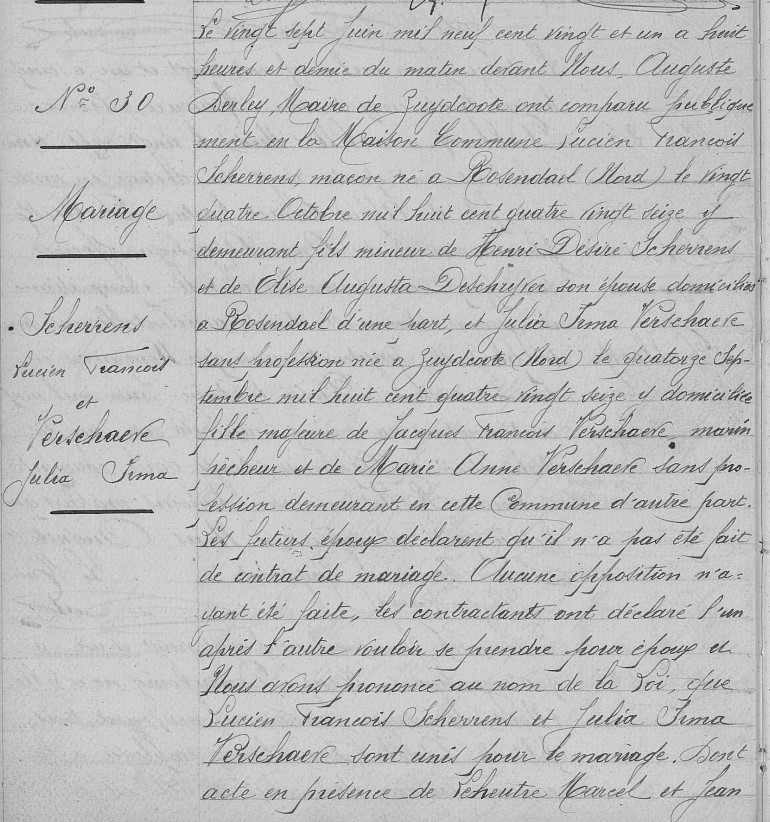 Le vingt sept Juin mil neuf cent vingt et un a huit
heures et demie du matin devant Nous, Auguste
Derley, Maire de Zuydcoote ont comparu publique
ment en la Maison Commune Lucien Francois
Scherrens, maçon né a Rosendael (Nord) le vingt
quatre Octobre mil huit cent quatre vingt seize y
demeurant fils mineur de Henri Désiré Scherrens
et de Elise Augusta Deschuyver son épouse domiciliés
a Rosendael d'une part, et Julia Irma Verschaeve
sans profession née à Zuydcoote (Nord) le quatorze Sep-
tembre mil huit cent quatre vingt seize y domiciliée
fille majeure de Jacques Francois Verschaeve marin
pêcheur et de Marie Anne Verschaeve sans pro-
fession demeurant en cette Commune d'autre part.
Les futurs époux déclarent qu'il n'a pas été fait
de contrat de mariage. Aucune opposition n'a=
yant été faite, les contractants ont déclaré l'un
après l'autre vouloir se prendre pour époux et
Nous avons prononcé au nom de la Loi que
Lucien Francois Scherrens et Julia Irma
Verschaeve sont unis pour le mariage. Dont
acte en présence de Leheutre Marcel et Jean
N° 30
Mariage
Scherrens
Lucien Francois
et
Verschaeve
Julia Irma